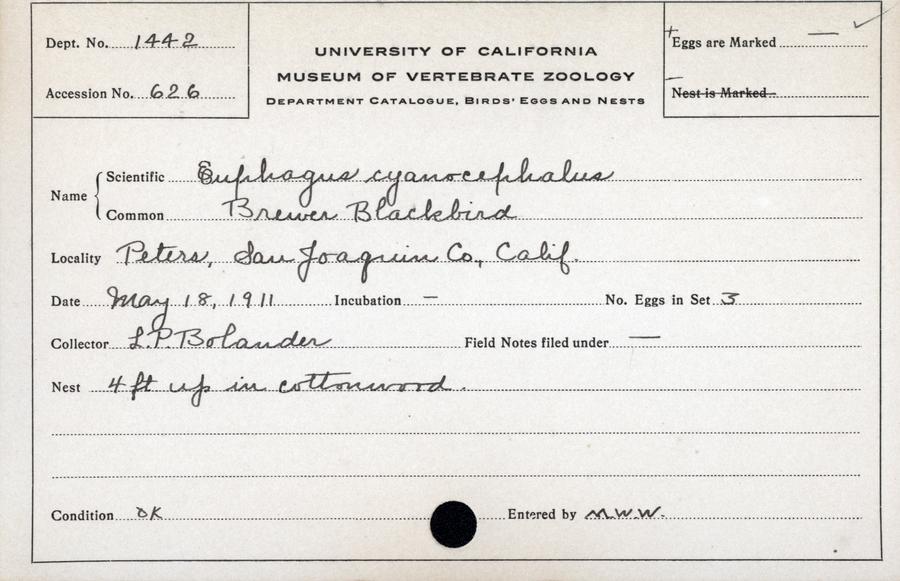 Dept. No. 1442
Accession No. 626
UNIVERSITY OF CALIFORNIA
MUSEUM OF VERTEBRATE ZOOLOGY
DEPARTMENT CATALOGUE, BIRDS' EGGS AND NESTS
+ Eggs are Marked — ✓
— Nest is Marked
Name
Scientific Euphagus cyanocephalus
Common Brewer Blackbird
Locality Peters, San Joaquin Co., Calif.
Date May 18, 1911 Incubation — No. Eggs in Set 3
Collector L.P. Bolander Field Notes filed under —
Nest 4 ft up in cottonwood.
Condition OK Entered by M.W.W.